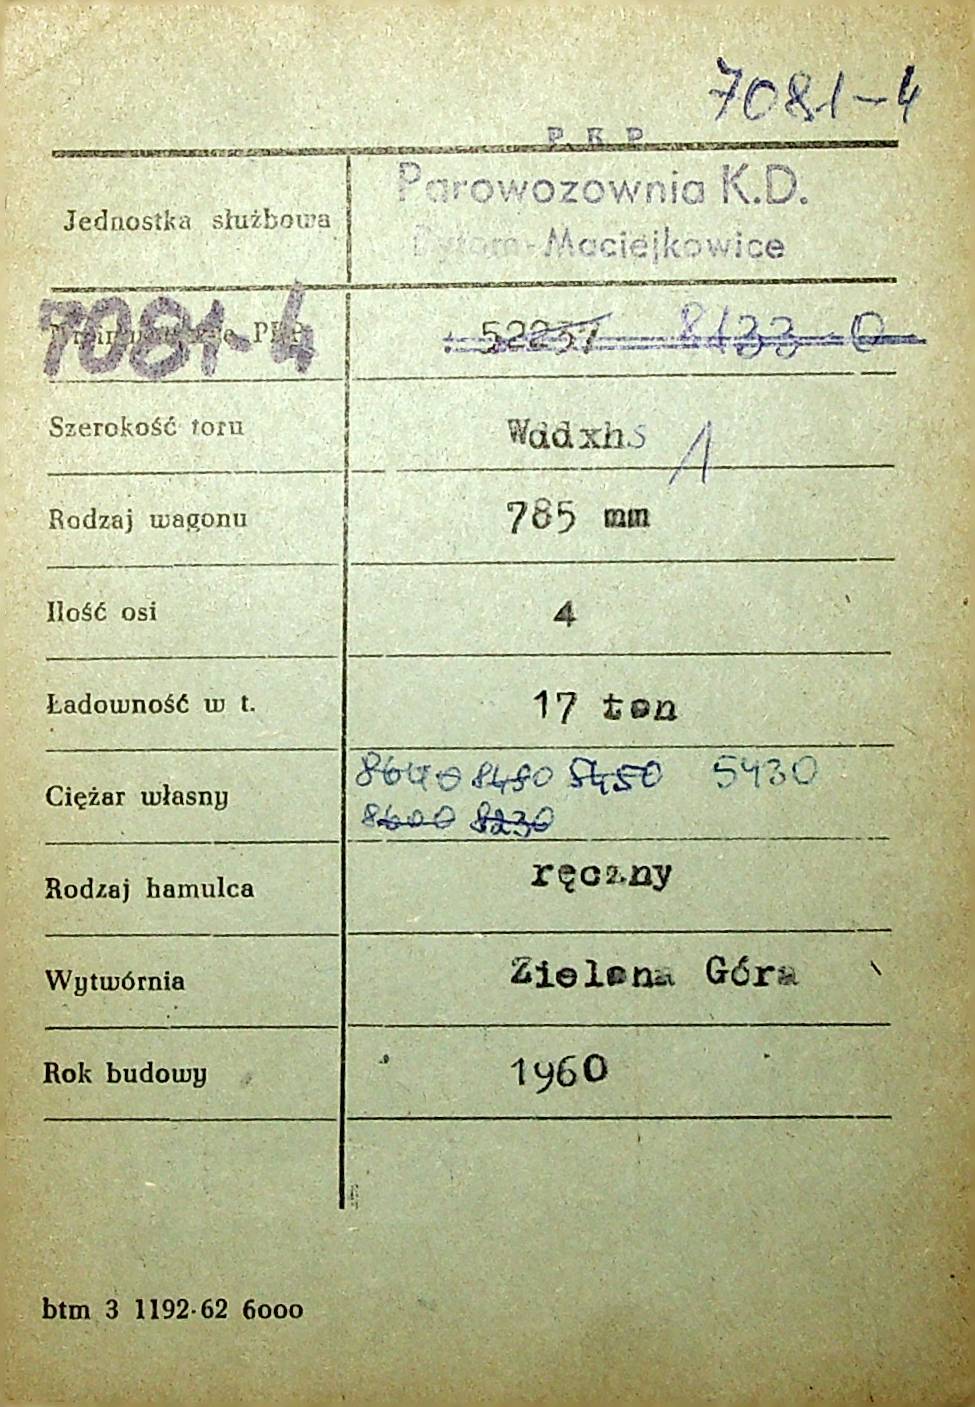 7081-4
P K P
Parowozownia K.D.
Jednostka służbowa
Bytom-Maciejkowice
7081-4 52257 8133-0
Szerokość toru Wddxhs 1
Rodzaj wagonu 785 mm
Ilość osi 4
Ładowność w t. 17 ton
8640 8480 5450 5430
Ciężar własny
8600 8230
Rodzaj hamulca ręczny
Wytwórnia Zielona Góra
Rok budowy 1960
btm 3 1192·62 6000